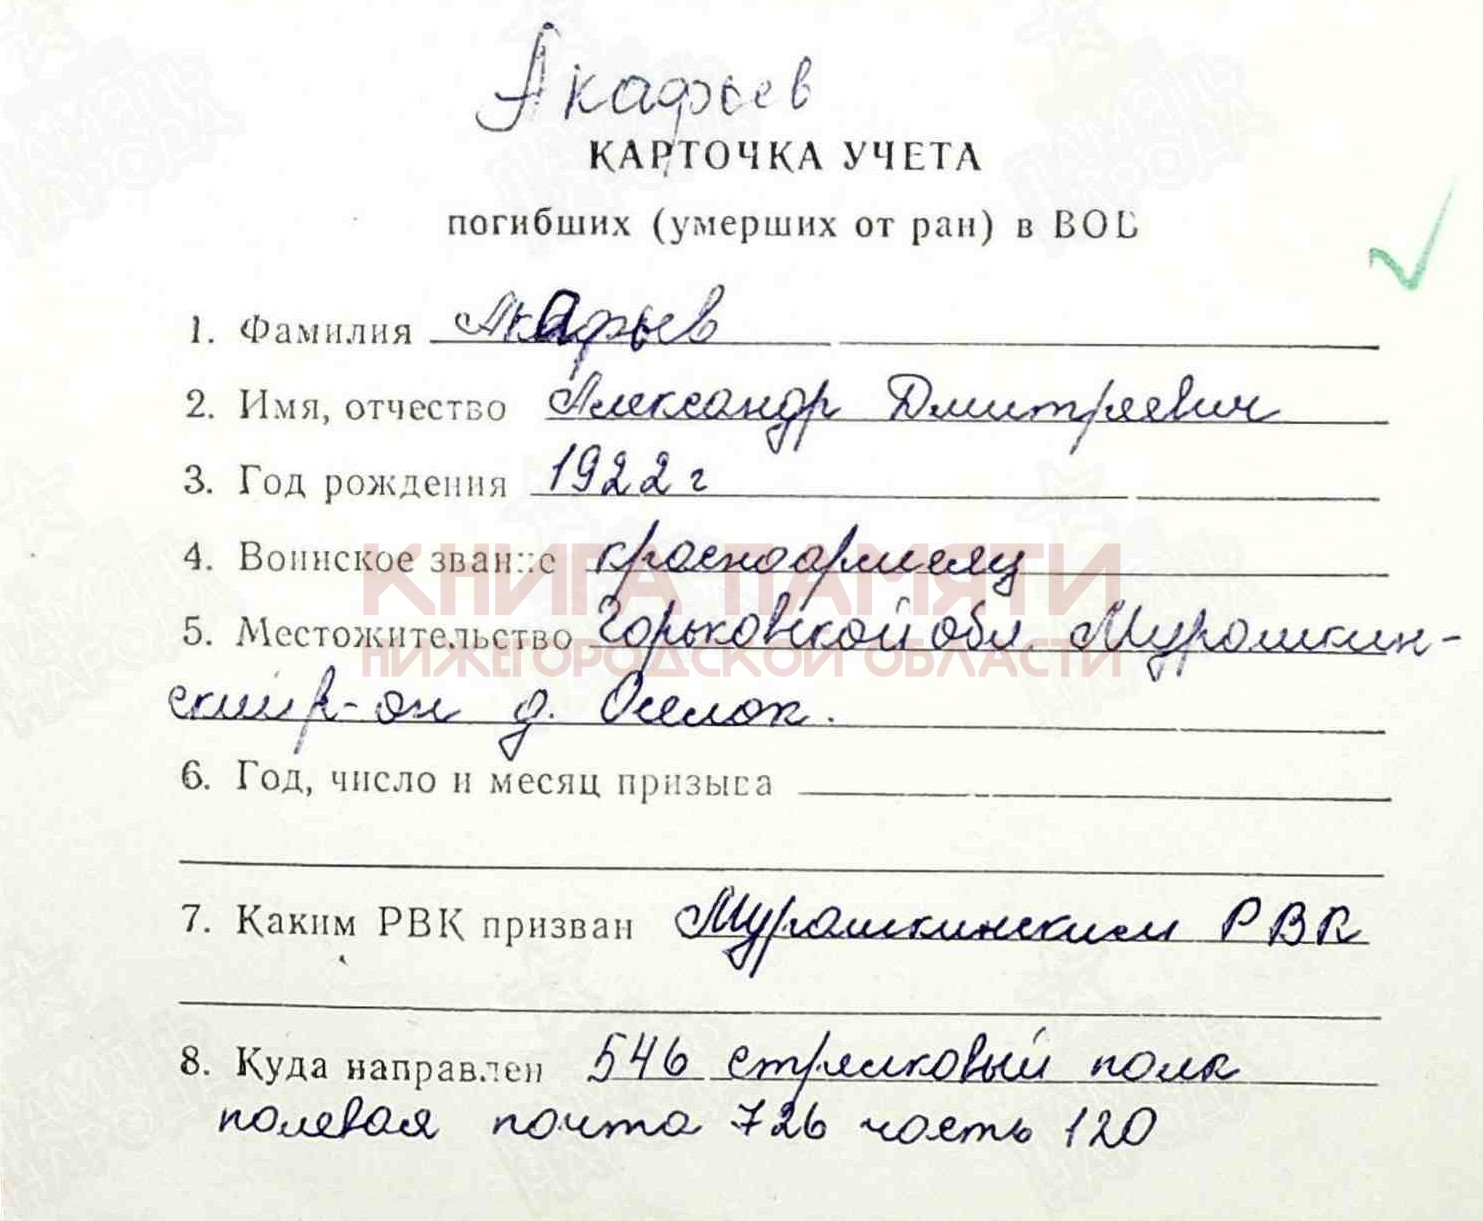 Акафьев
КАРТОЧКА УЧЕТА
погибших (умерших от ран) в ВОВ
1. Фамилия Акафьев
2. Имя, отчество Александр Дмитриевич
3. Год рождения 1922 г
4. Воинское звание красноармеец
КНИГА ПАМЯТИ
5. Местожительство Горьковской обл. Мурашкин-
НИЖЕГОРОДСКОЙ ОБЛАСТИ
ский р-он д. Оселок.
6. Год, число и месяц призыва
7. Каким РВК призван Мурашкинским РВК
8. Куда направлен 546 стрелковый полк
полевая почта 726 часть 120